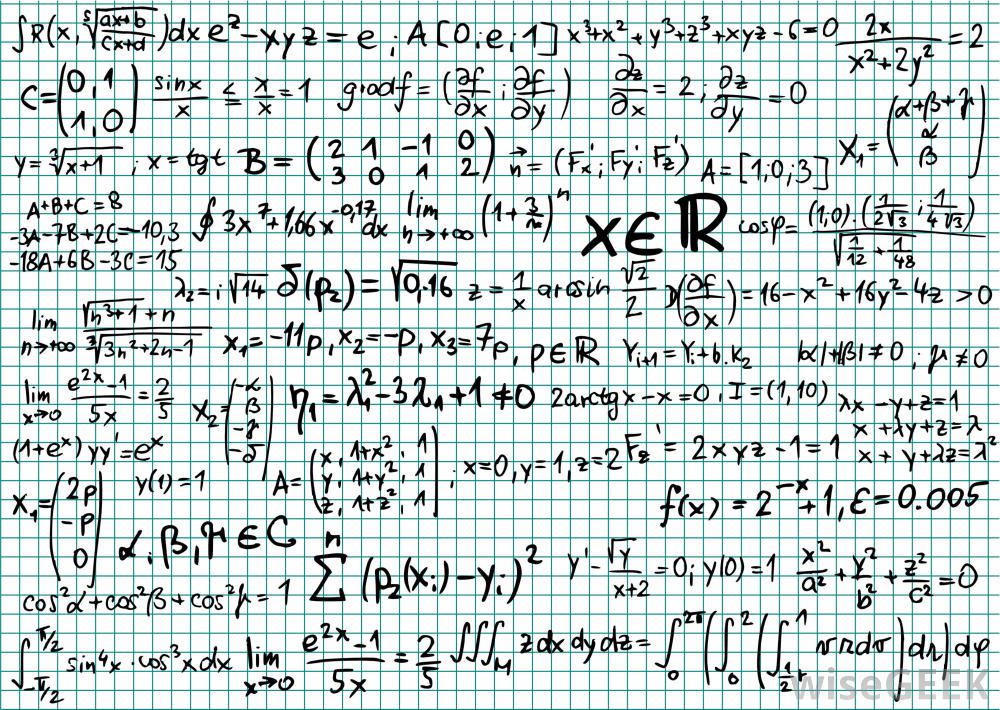 ∫R(x, ⁵√((ax+b)/(cx+d)))dx e^z − xyz = e ; A[0;e;1] x³+x²+y³+z³+xyz−6=0 2x/(x²+2y²) = 2
C=(0,1 / 1,0) sinx/x ≤ x/x = 1 gradf = (∂f/∂x ; ∂f/∂y) ∂z/∂x = 2 ; ∂z/∂y = 0
y=³√(x+1) ; x=tgt B = (2 1 −1 0 / 3 0 1 2) n⃗=(Fx'; Fy'; Fz') A=[1;0;3] X₁=(α+β+γ / α / β)
A+B+C=8
-3A-7B+2C=-10,3
-18A+6B-3C=15
∮3x⁷+1,66x^(-0,17)dx lim n→+∞ (1+3/n)^n x∈ℝ cosφ= (1,0)·(1/(2√3) ; 1/(4√3)) / √(1/12 + 1/48)
λ₂=i√14 δ(p₂)=√0,16 z=1/x arcsin √2/2 D(∂f/∂x)=16−x²+16y²−4z >0
lim n→+∞ (√(n³+1)+n) / ³√(3n²+2n−1) x₁=−11p, x₂=−p, x₃=7p, p∈ℝ Y_{i+1}=Y_i+b.k₂ |α|+|β|≠0 ; γ≠0
lim x→0 (e^(2x)−1)/5x = 2/5 X₂=(−α / β / −γ / −δ) η₁=λ₁²−3λ₁+1≠0 2arctgx−x=0, I=(1,10)
λx −y+z=1
x +λy+z=λ
x + y+λz=λ²
(1+e^x)yy'=e^x
y(1)=1
A=(x, 1+x², 1 / y, 1+y², 1 / z, 1+z², 1) ; x=0,y=1,z=2 Fz'=2xyz−1=1
X₁=(2p / −p / 0) f(x)=2^(−x)+1, ε=0.005
α,β,γ∈C
cos²α+cos²β+cos²γ=1 n ∑(p₂(x_i)−y_i)² y'−√y/(x+2)=0; y(0)=1 x²/a²+y²/b²+z²/c²=0
∫_{-π/2}^{π/2} sin⁴x·cos³xdx lim x→0 (e^(2x)−1)/5x = 2/5 ∭_M zdxdydz=
wiseGEEK